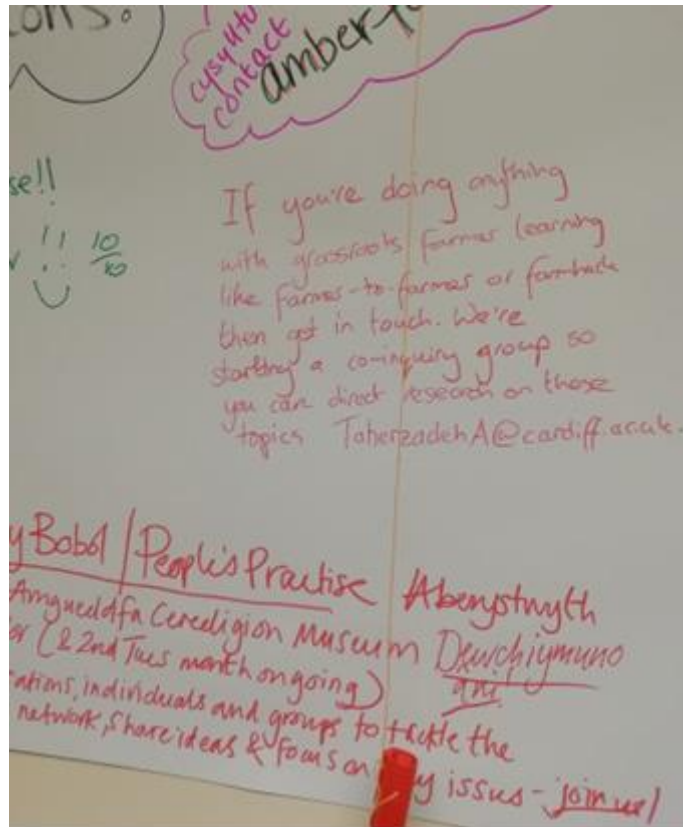 ons.
cysylltu
contact
amber
se!!
!! 10/10
If you're doing anything
with grassroots farmer learning
like farmer-to-farmer or farmhack
then get in touch. We're
starting a co-inquiry group so
you can direct research on those
topics TaherzadehA@cardiff.ac.uk.
y Bobol / People's Practise Aberystwyth
Amgueddfa Ceredigion Museum Dewch i ymuno
(& 2nd Tues month ongoing) â ni
ations, individuals and groups to tackle the
network, share ideas & focus on issues - join us!